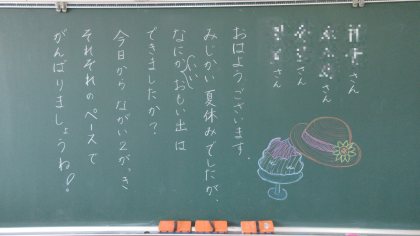 さん
さん
さん
おはようございます。
みじかい夏休みでしたが、
なにかたのしい思い出は
できましたか？
今日から ながい2がっき
それぞれのペースで
がんばりましょうね！